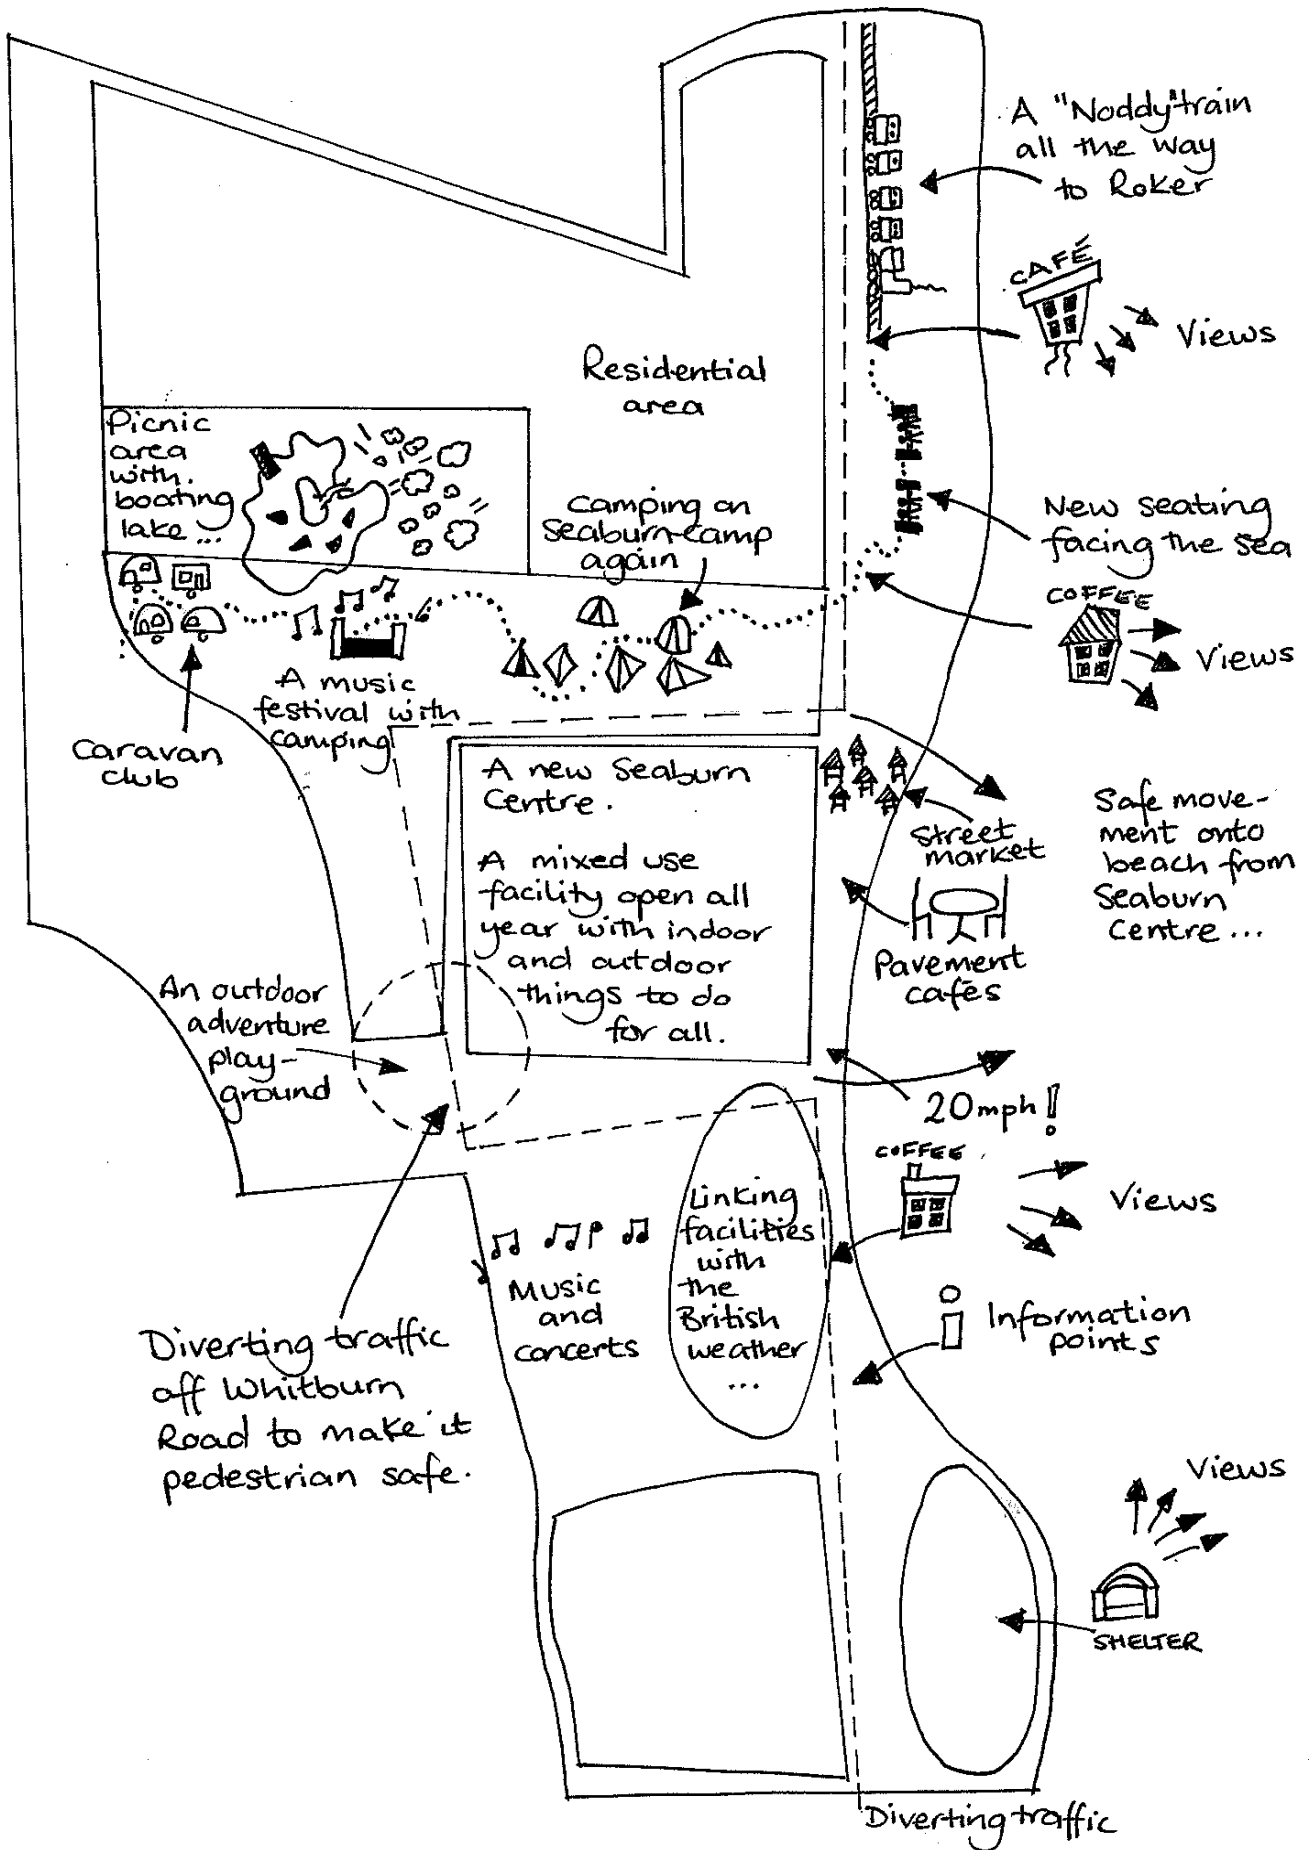 A "Noddy" train
all the way
to Roker
CAFÉ
Views
Residential
area
Picnic
area
with.
boating
lake...
Camping on
Seaburn-camp
again
New seating
facing the sea
COFFEE
Views
A music
festival with
camping
Caravan
club
A new Seaburn
Centre.
A mixed use
facility open all
year with indoor
and outdoor
things to do
for all.
Street
market
Safe move-
ment onto
beach from
Seaburn
Centre...
Pavement
cafés
An outdoor
adventure
play-
ground
20mph!
COFFEE
Views
Linking
facilities
with
the
British
weather
...
Music
and
concerts
i Information
points
Diverting traffic
off Whitburn
Road to make it
pedestrian safe.
Views
SHELTER
Diverting traffic